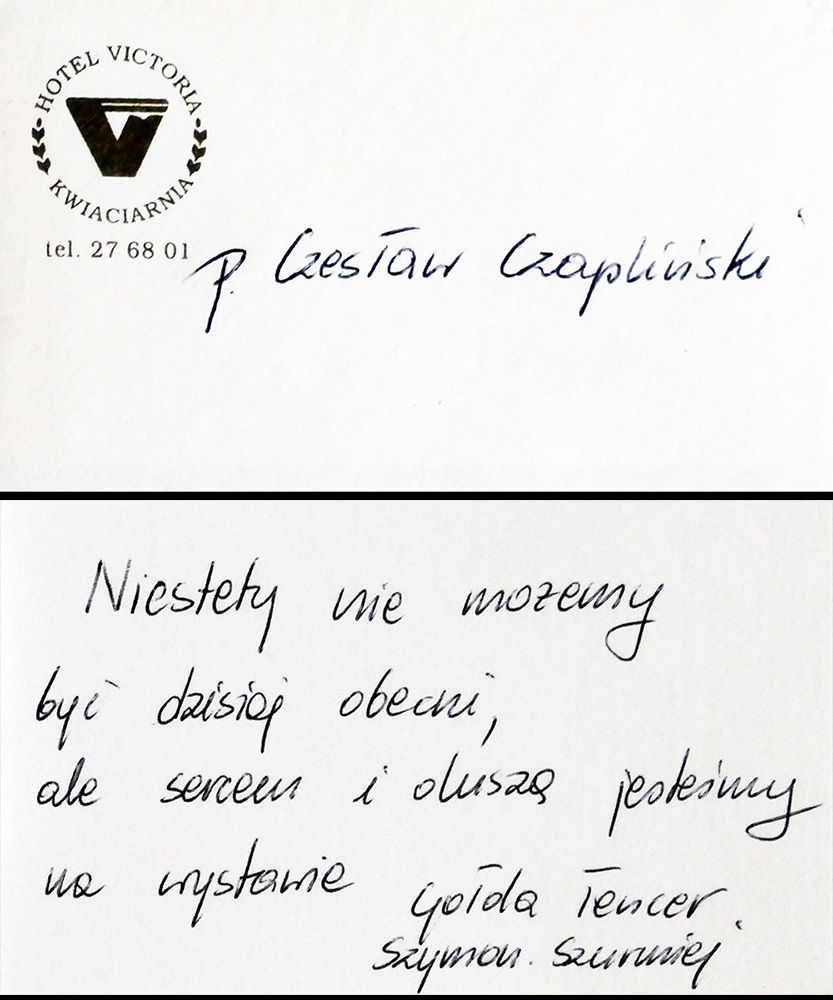 HOTEL VICTORIA
KWIACIARNIA
tel. 27 68 01
P. Czesław Czapliński
Niestety nie możemy
być dzisiaj obecni,
ale sercem i duszą jesteśmy
na wystawie
Gołda Tencer
Szymon Szurmiej